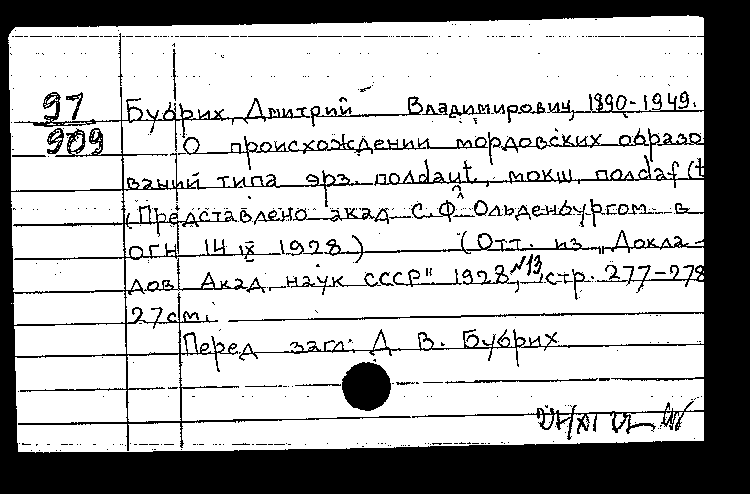 97
909
Бубрих, Дмитрий Владимирович, 1890-1949.
О происхождении мордовских образо
ваний типа эрз. полdауt, мокш. полdаf (t
(Представлено акад С.Ф. Ольденбургом в
ОГН 14 IX 1928) (Отт. из „Докла-
дов Акад. наук СССР" 1928, N13, стр. 277-278
27см.
Перед загл: Д. В. Бубрих